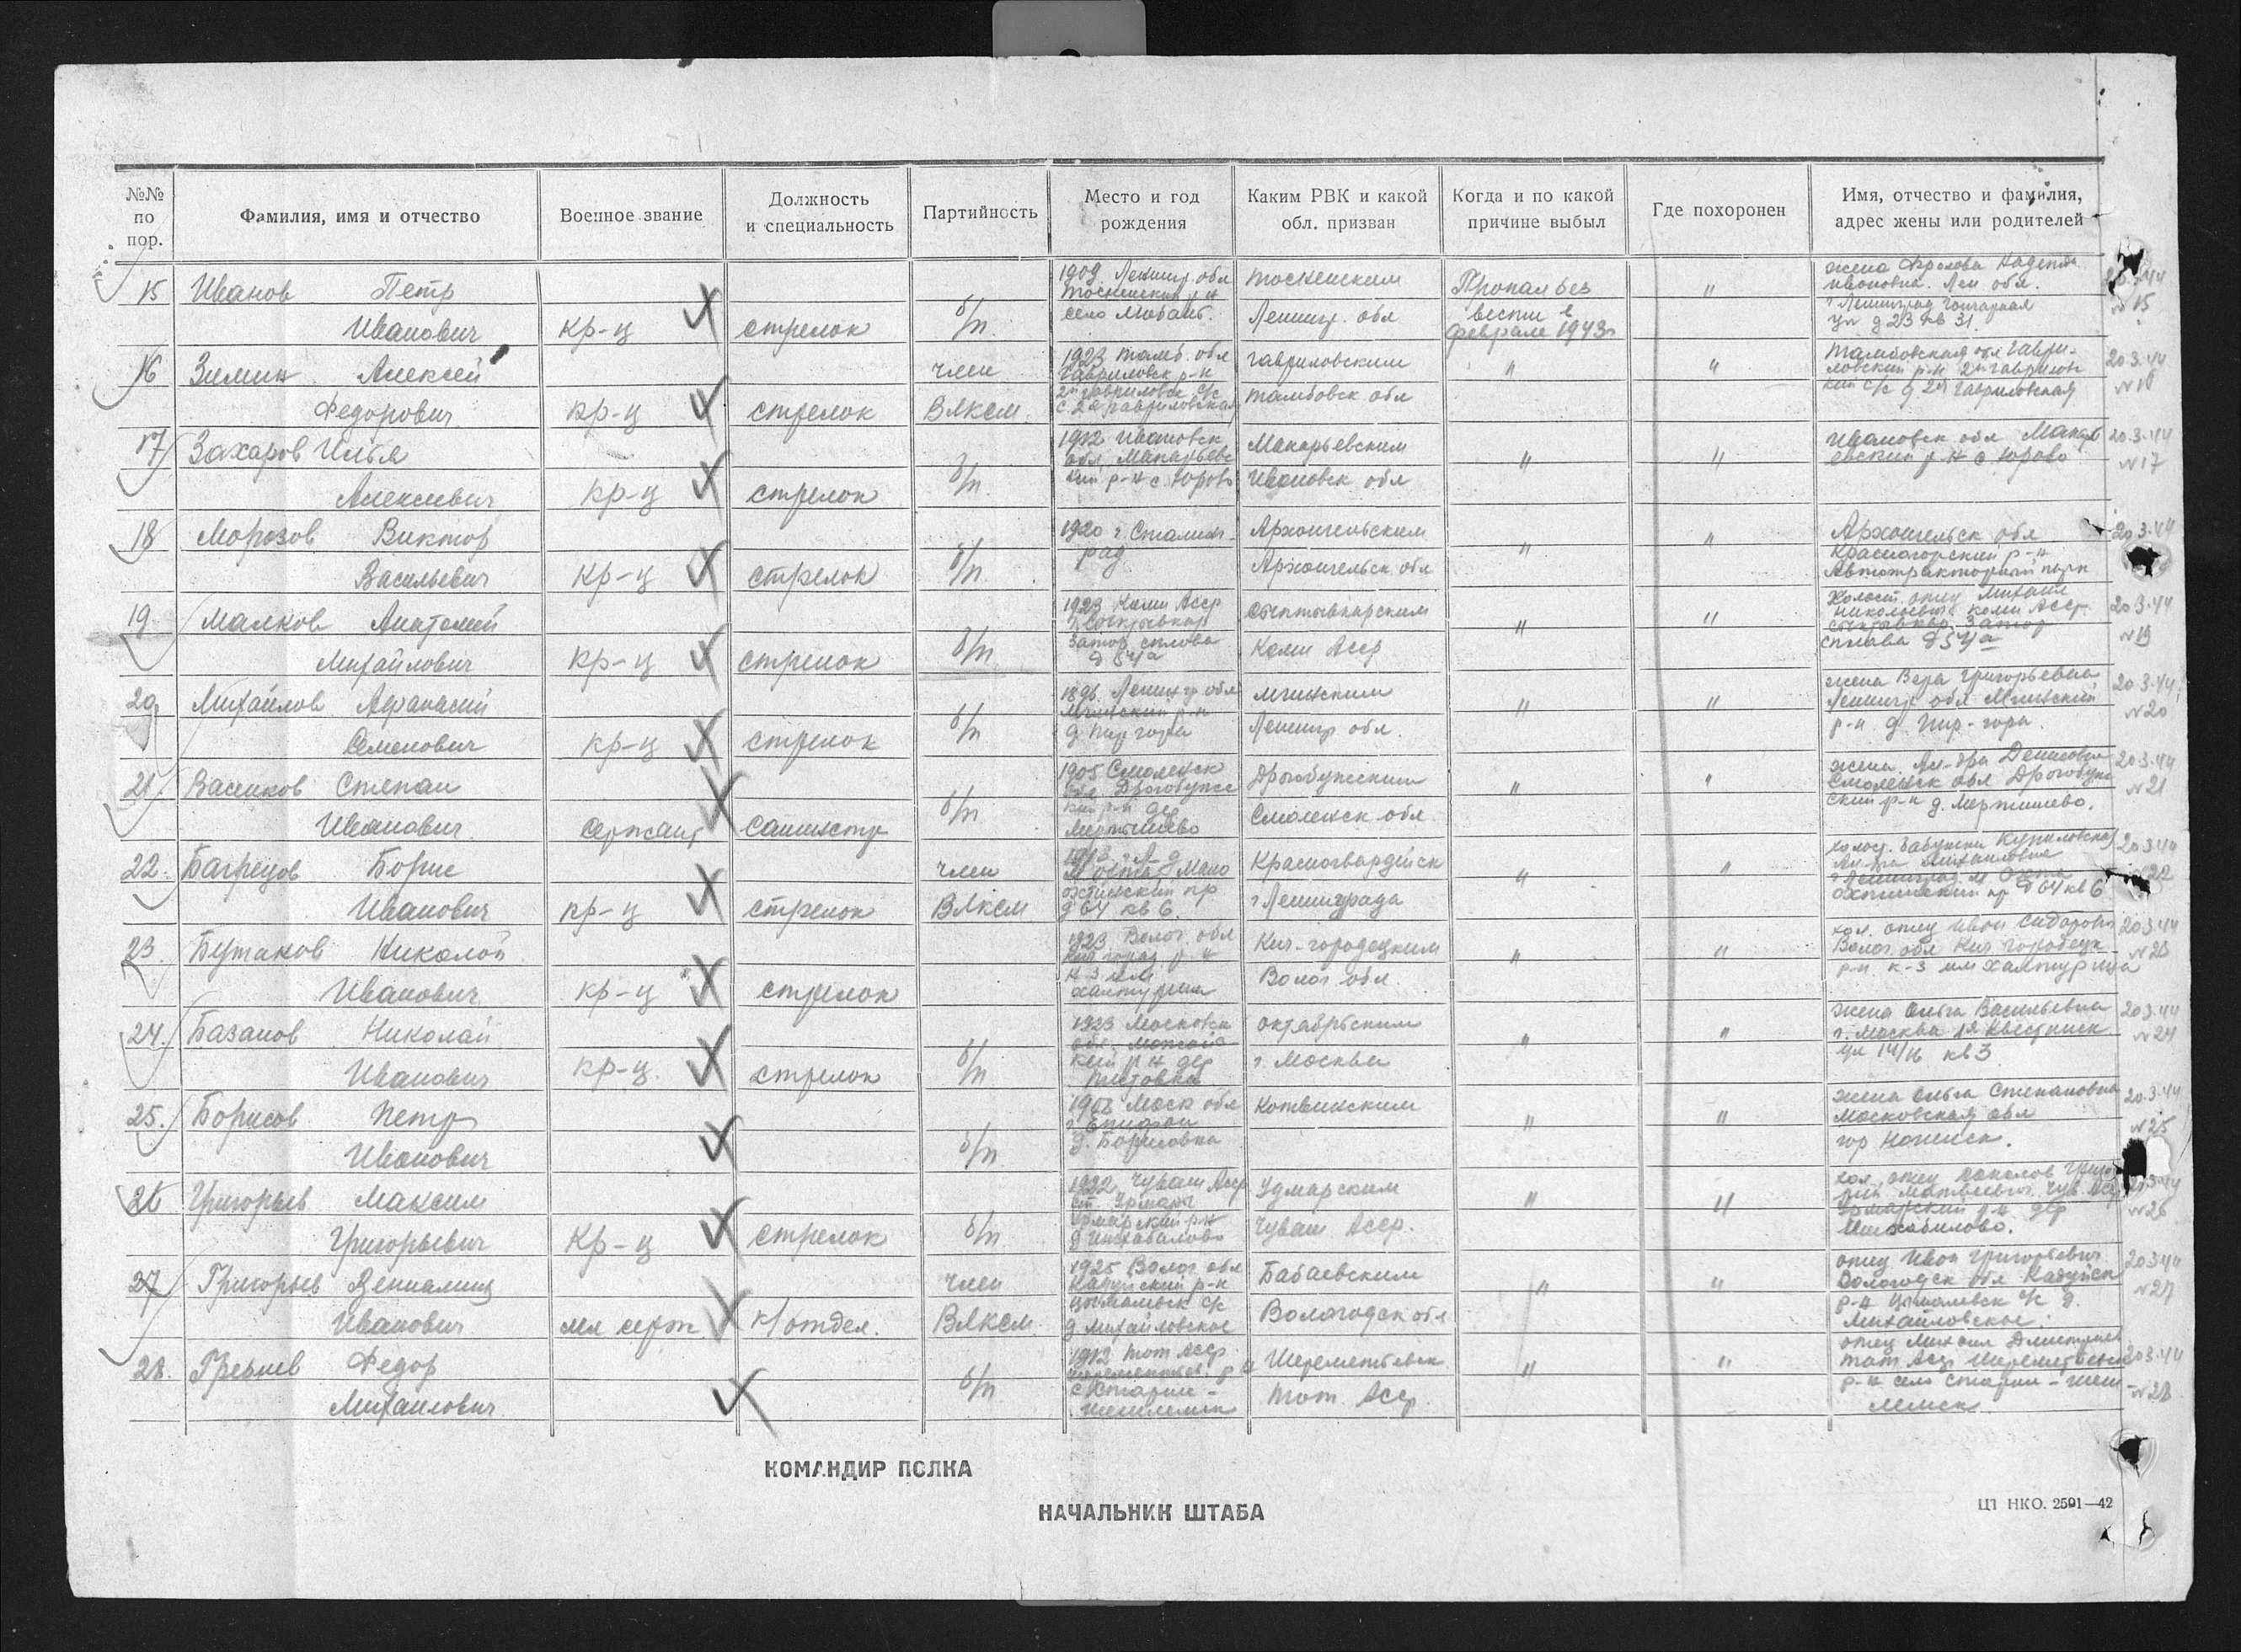 №№ по пор.
Фамилия, имя и отчество
Военное звание
Должность и специальность
Партийность
Место и год рождения
Каким РВК и какой обл. призван
Когда и по какой причине выбыл
Где похоронен
Имя, отчество и фамилия, адрес жены или родителей
15 Иванов Петр
Иванович кр-ц стрелок б/п
1909 Ленингр. обл
Тосненский р-н
село
Тосненским
Ленингр. обл
Пропал без
вести в
феврале 1943г
"
жена Фролова
Ивановна. Лен обл.
г Ленинград Гончарная
ул д 23 кв 31.
20.3.44
№ 15
16 Зимин Алексей
Федорович кр-ц стрелок
член
ВЛКСМ
1923 Тамб. обл
Гавриловск р-н
2я Гавриловск с/с
с. 2я Гавриловская
Гавриловским
Тамбовск обл
" "
Тамбовская обл Гаври-
ловский р-н 2я Гаврилов
кий с/с д 2я Гавриловская
20.3.44
№ 16
17 Захаров Илья
Алексеевич кр-ц стрелок б/п
1912 Ивановск
обл. Макарьевс
кий р-н с Юрово
Макарьевским
Ивановск обл
" "
Ивановск обл Макарь
евский р-н с Юрово
20.3.44
№ 17
18 Морозов Виктор
Васильевич кр-ц стрелок б/п
1920 г. Сталин-
рад
Архангельским
Архангельск. обл
" "
Архангельск обл
Красногорский р-н
Автотракторный парк
20.3.44
19 Малков Анатолий
Михайлович кр-ц стрелок б/п
1923 Коми Асср
г Сыктывкар
Затон сплава
д 54а
Сыктывкарским
Коми Асср
" "
Холост. отец Михаил
Николаевич Коми Асср.
Сыктывкар. Затон
сплава д 54а
20.3.44
№ 19
20 Михайлов Афанасий
Семенович кр-ц стрелок б/п
1896 Ленингр обл
Мгинский р-н
д Пиргора
Мгинским
Ленингр обл.
" "
жена Вера Григорьевна
Ленингр обл Мгинский
р-н д. Пир-гора.
20.3.44
№ 20
21 Васиков Степан
Иванович сержант санинстр б/п
1905 Смоленск
обл Дрогобужс
кий р-н дер
Дрогобужским
Смоленск обл.
" "
жена Ал-дра Денисовна
Смоленск обл Дрогобуж
ский р-н д.
20.3.44
№ 21
22. Багрецов Борис
Иванович кр-ц стрелок
член
ВЛКСМ
Мало
охтинский пр
д 64 кв 6.
Красногвардейск
г Ленинграда
" "
холост. бабушка
Ал-дра Михайловна
г Ленинград М Охта
охтинский пр д 64 кв 6
20.3.44
22
23. Бутаков Николай
Иванович кр-ц стрелок
1923 Волог. обл
к-з им
Халтурина
Кич-городецким
Волог обл
" "
хол. отец Иван Сидорович
Волог. обл Кич городецк
р-н. к-з им Халтурина
20.3.44
№ 23
24. Базанов Николай
Иванович кр-ц. стрелок б/п
1923 Московск
обл. Можайс
кий р-н дер
Октябрьским
г. Москвы
" "
жена Ольга Васильевна
г. Москва
ул 14/16 кв 3
20.3.44
№ 24
25. Борисов Петр
Иванович б/п
Моск обл
г Епифан
д. Борисовка
" "
жена Ольга Степановна
Московская обл
гор Ногинск.
20.3.44
№ 25
26 Григорьев Максим
Григорьевич кр-ц стрелок б/п
1922 Чуваш Асср
ст. Урмары
Урмарский р-н
Чуваш Асср.
" "
хол. отец Соколов Григо
рий Матвеевич Чув Асср
Урмарский р-н дер
20.3.44
№ 26
27 Григорьев Вениамин
Иванович мл серж к/отдел.
член
ВЛКСМ
1925 Волог. обл
Кадуйский р-н
д Михайловское
Бабаевским
Вологодск обл
" "
отец Иван Григорьевич
Вологодск обл Кадуйск
р-н с/с д.
Михайловское.
20.3.44
№ 27
28. Гребнев Федор
Михайлович б/п
1912 Тат Асср
Шереметьевск. р-н
с Старые-
Шереметьевск
Тат. Асср
" "
отец Михаил Дмитриев
Тат Асср Шереметьевск
р-н село Старые-
20.3.44
№ 28
КОМАНДИР ПОЛКА
НАЧАЛЬНИК ШТАБА
ЦТ НКО. 2591—42